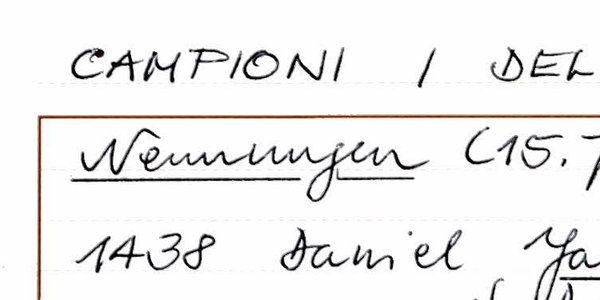 CAMPIONI / DEL
Nennungen (15.
1438 Daniel Ya